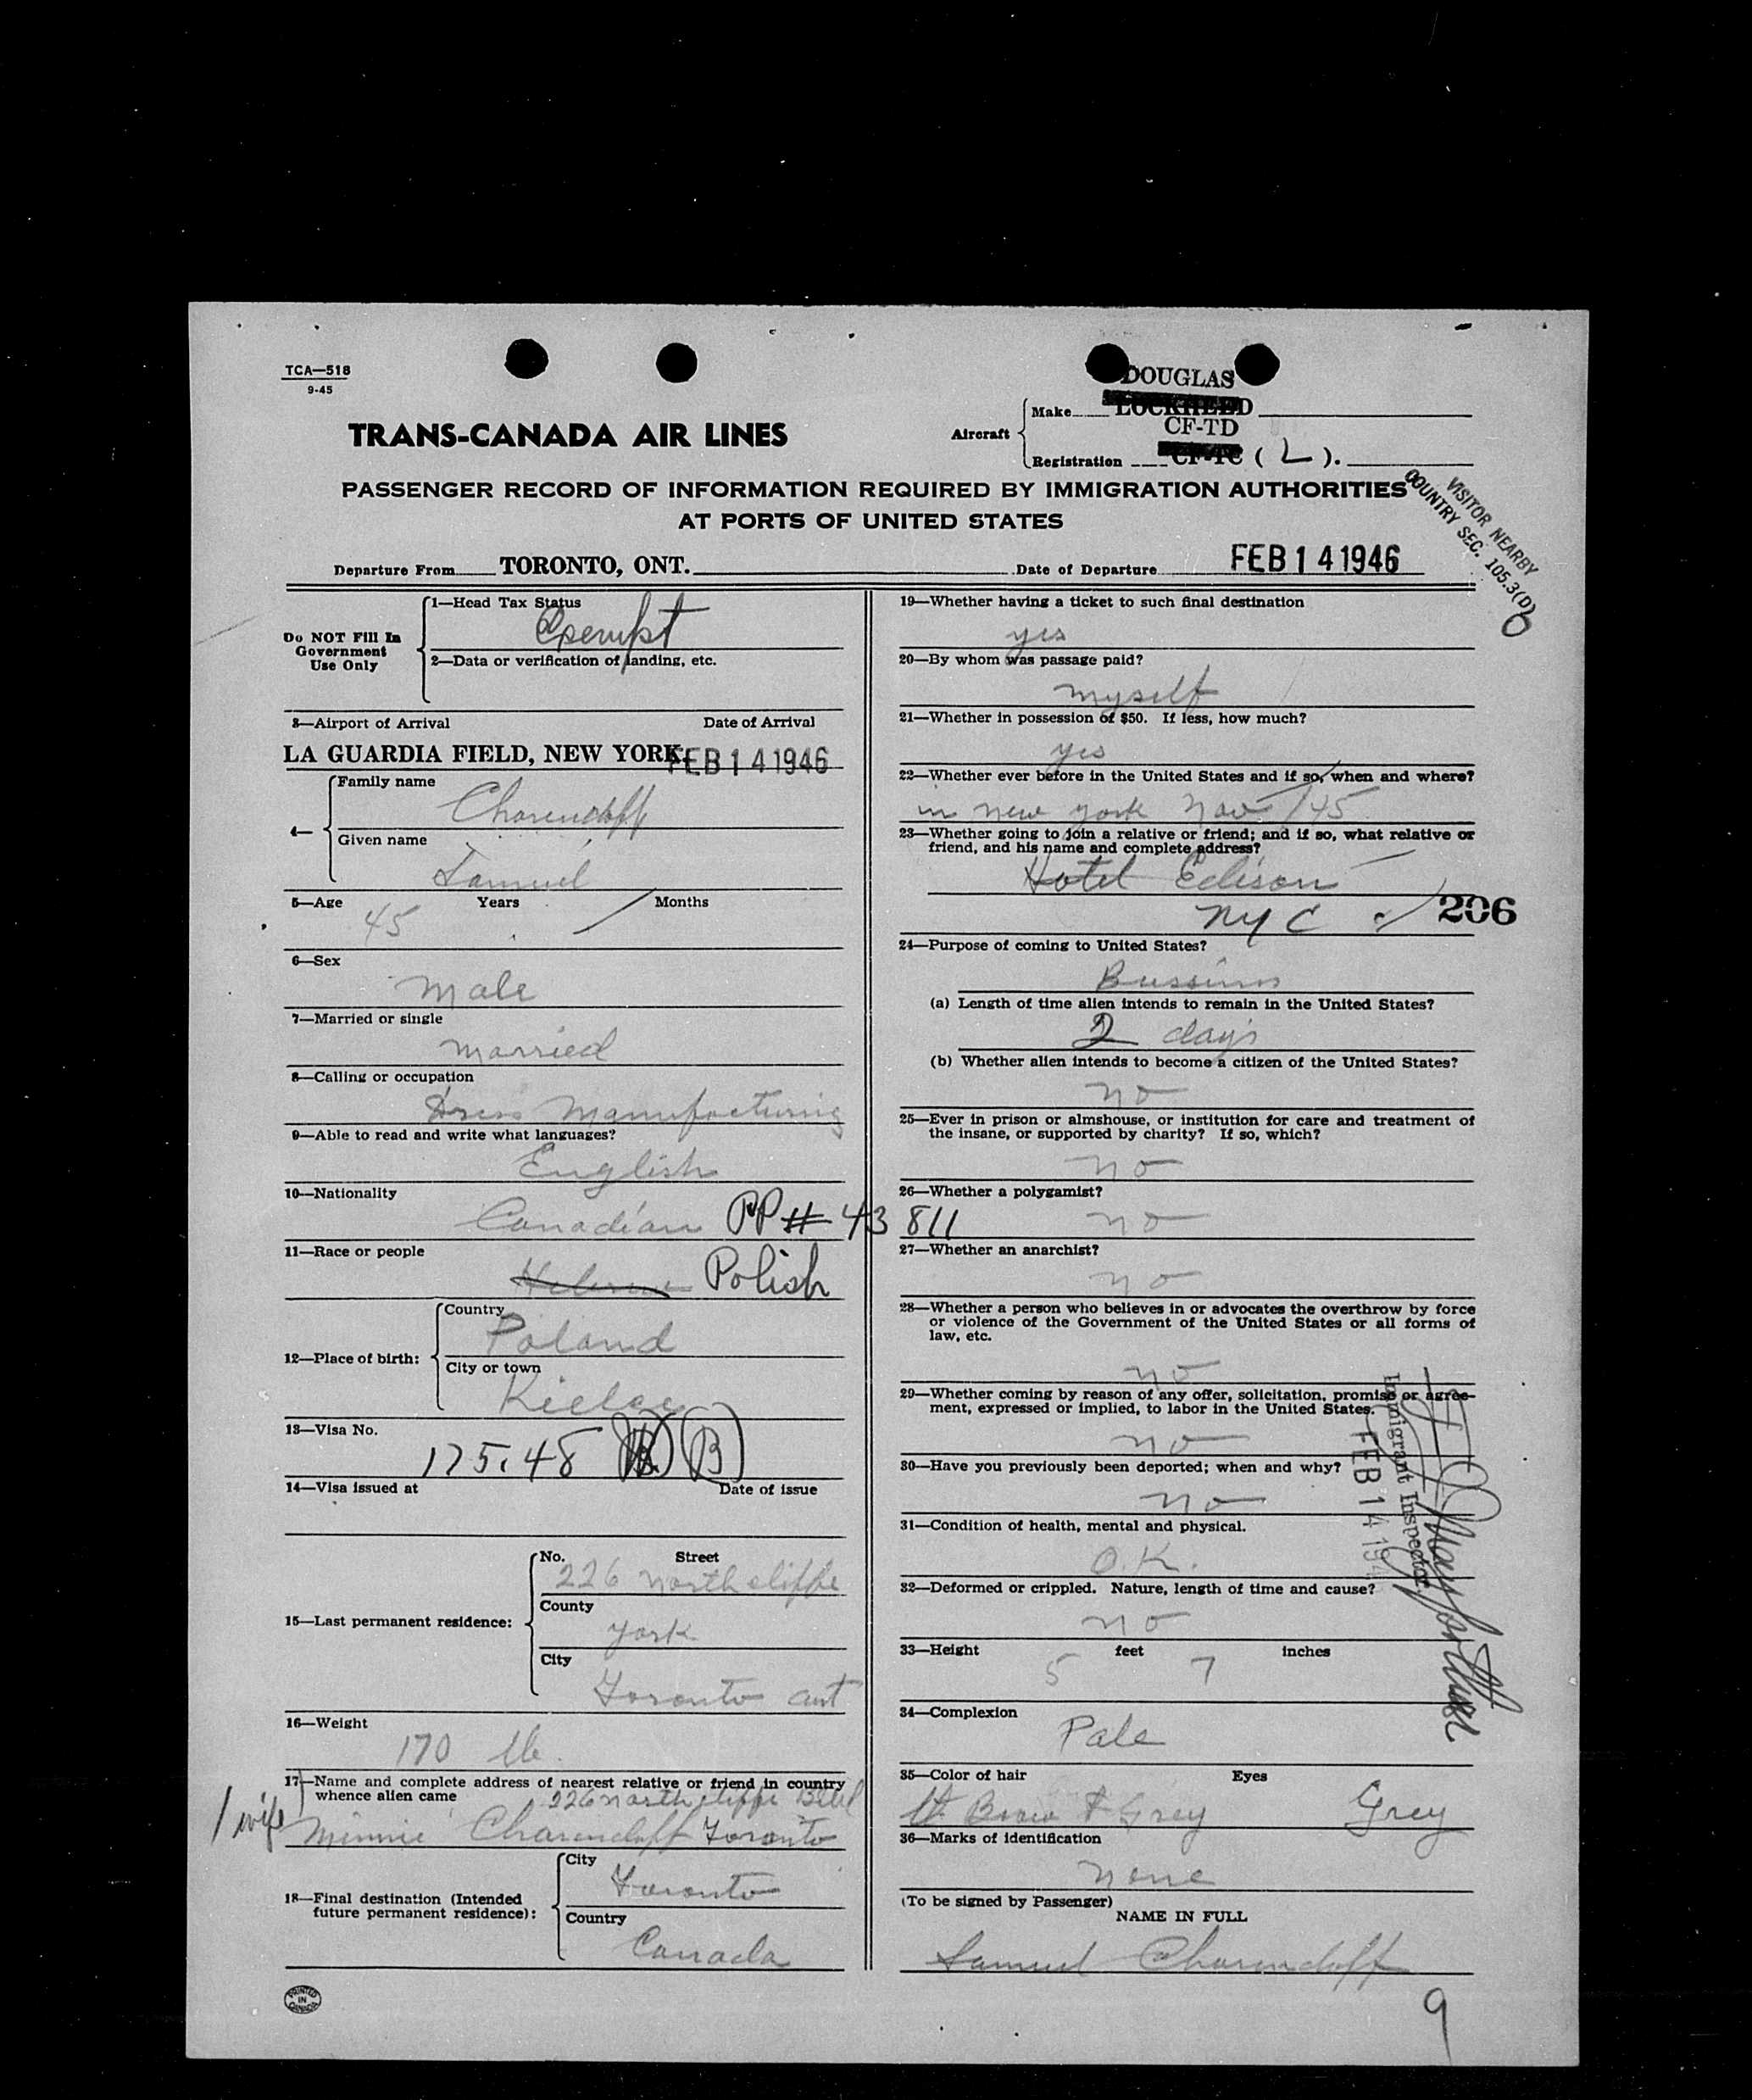 TCA—518
9-45
DOUGLAS
Aircraft
Make LOCKHEED
CF-TD
Registration CF-TC ( L ).
TRANS-CANADA AIR LINES
PASSENGER RECORD OF INFORMATION REQUIRED BY IMMIGRATION AUTHORITIES
AT PORTS OF UNITED STATES
VISITOR NEARBY
COUNTRY SEC. 105.3(D)
Departure From TORONTO, ONT. Date of Departure FEB 14 1946
Do NOT Fill In
Government
Use Only
1—Head Tax Status
Exempt
2—Data or verification of landing, etc.
3—Airport of Arrival Date of Arrival
LA GUARDIA FIELD, NEW YORK. FEB 14 1946
4—
Family name
Charendoff
Given name
Samuel
5—Age Years Months
45
6—Sex
Male
7—Married or single
Married
8—Calling or occupation
Dress Manufacturing
9—Able to read and write what languages?
English
10—Nationality
Canadian PP # 43 811
11—Race or people
Hebrew Polish
12—Place of birth:
Country
Poland
City or town
Kielce
13—Visa No.
175.48 (B)
14—Visa issued at Date of issue
15—Last permanent residence:
No. Street
226 Northcliffe
County
York
City
Toronto Ont
16—Weight
170 lb.
17—Name and complete address of nearest relative or friend in country
whence alien came 226 Northcliffe Blvd
/ wife Minnie Charendoff Toronto
18—Final destination (Intended
future permanent residence):
City
Toronto
Country
Canada
PRINTED
IN
CANADA
19—Whether having a ticket to such final destination
yes
20—By whom was passage paid?
myself
21—Whether in possession of $50. If less, how much?
yes
22—Whether ever before in the United States and if so, when and where?
in new york Nov /45
23—Whether going to join a relative or friend; and if so, what relative or
friend, and his name and complete address?
Hotel Edison
NYC
206
24—Purpose of coming to United States?
Bussines
(a) Length of time alien intends to remain in the United States?
2 days
(b) Whether alien intends to become a citizen of the United States?
no
25—Ever in prison or almshouse, or institution for care and treatment of
the insane, or supported by charity? If so, which?
no
26—Whether a polygamist?
no
27—Whether an anarchist?
no
28—Whether a person who believes in or advocates the overthrow by force
or violence of the Government of the United States or all forms of
law, etc.
no
29—Whether coming by reason of any offer, solicitation, promise or agree-
ment, expressed or implied, to labor in the United States.
no
30—Have you previously been deported; when and why?
no
31—Condition of health, mental and physical.
O.K.
32—Deformed or crippled. Nature, length of time and cause?
no
Immigrant Inspector
FEB 14 194
33—Height feet inches
5 7
34—Complexion
Pale
35—Color of hair Eyes
Lt Brow & Grey Grey
36—Marks of identification
none
(To be signed by Passenger)
NAME IN FULL
Samuel Charendoff
9